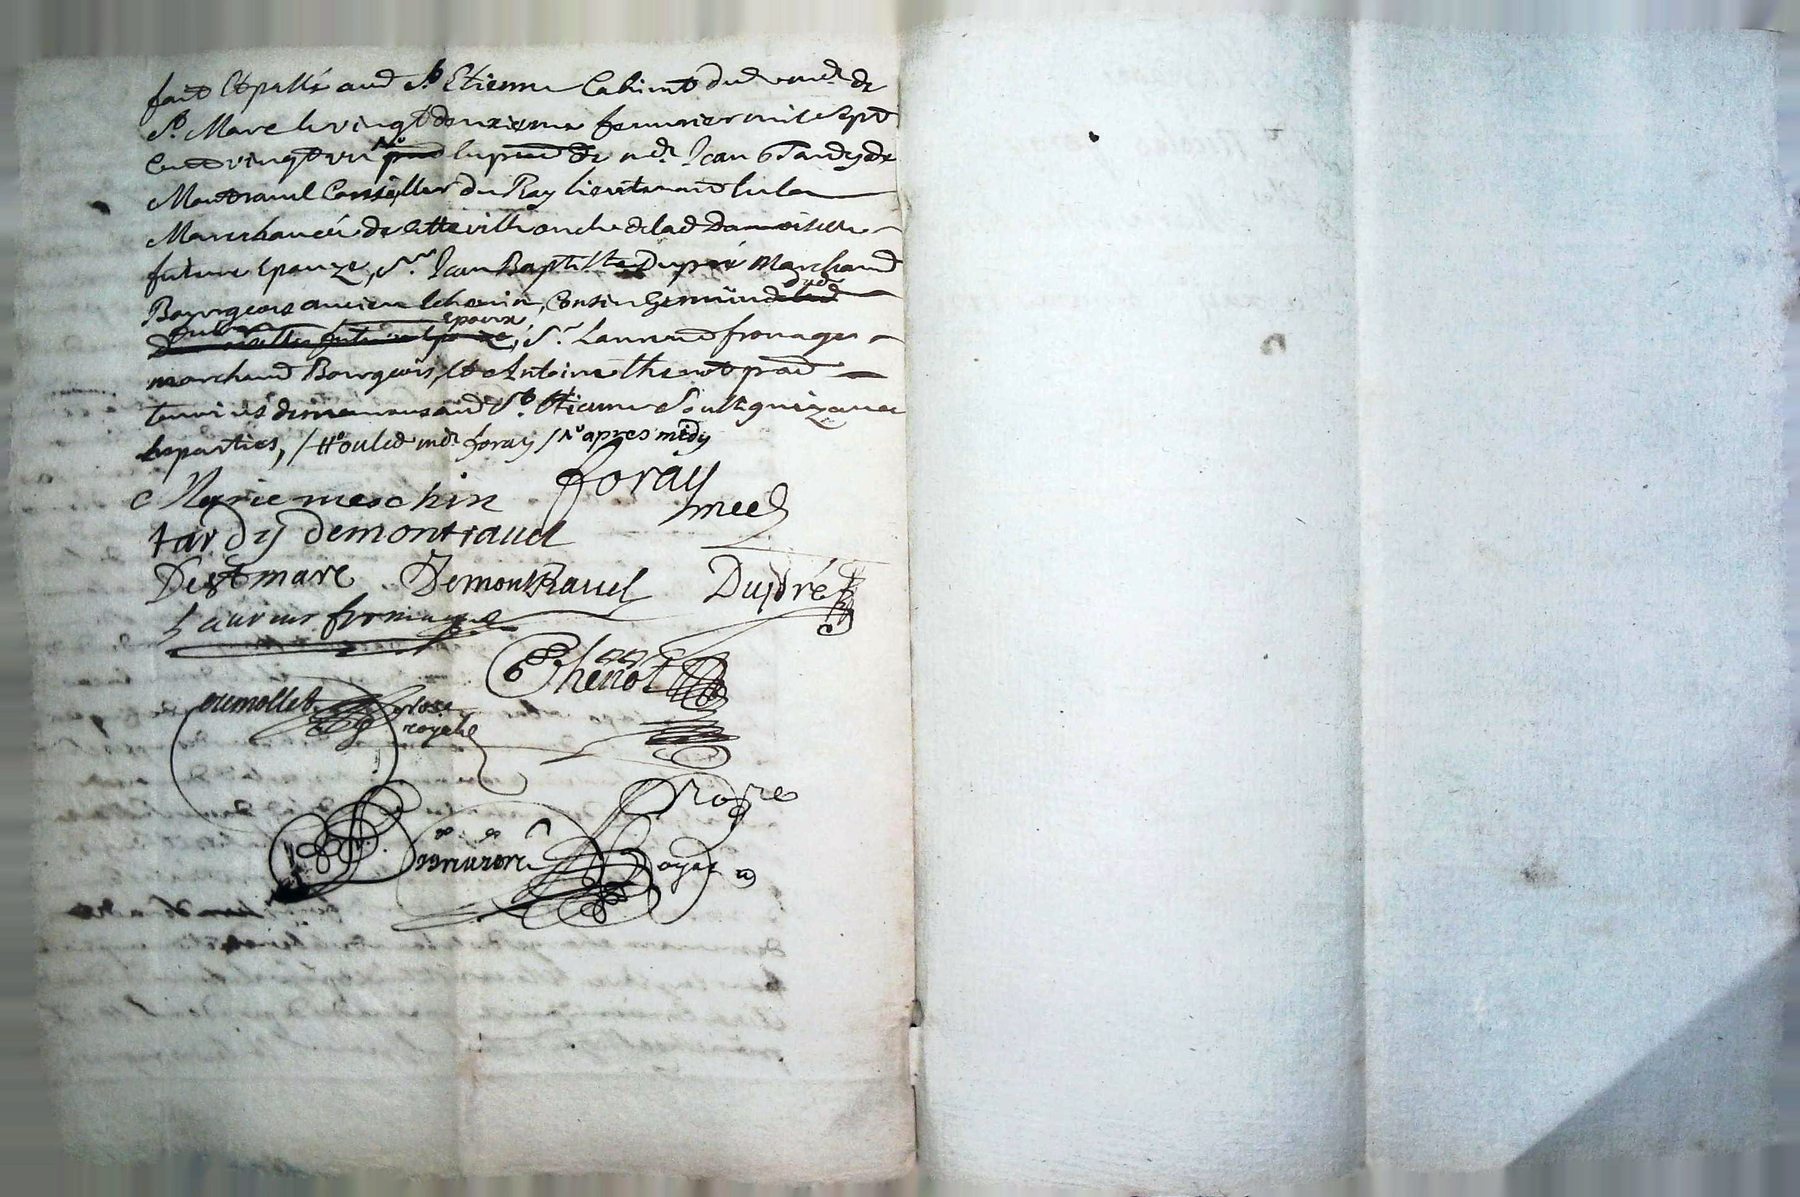 fait Et passé aud St. Etienne Cabinet dud. md. de
St. Mare le vingt deuxieme feuvrier mil sept
Cent vingt un No. le prnd de mr. Jean Tardy de
Montravel Conseiller du Roy lieutenant de la
Marechaucée de cette ville oncle de lad Damoiselle
future Epouze, Sr. Jean Baptiste Dupré Marchand
Bourgeois ancien Echevin, Cousin Germain dud.
futur Epoux, Sr. Laurand fromage
marchand Bourgeois, Et Antoine Thenot prat
temoins demeurans aud St. Etienne Soussignéz avec
les parties, / Ho ou led mr. foray / No apres midy
Marie meschin foray
tardy demontravel
De st mare Demontravel Dupré
Laurans fromage
Thenot
grosse
royale
Royal